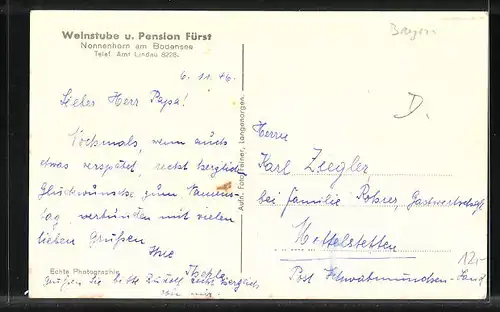 Weinstube u. Pension Fürst
Nonnenhorn am Bodensee
Telef. Amt Lindau 8228.
Bayern
6. 11. 46.
D.
Lieber Herr Papa!
Nochmals, wenn auch
etwas verspätet, recht herzliche
Glückwünsche zum Namens-
tag, verbunden mit vielen
lieben Grüßen
Ihre
Thekla
Grüßen Sie bitte Rudolf recht herzlich
von mir.
Echte Photographie
Aufn. Foto Langenargen.
Herrn
Karl Ziegler
bei Familie Rohrer, Gastwirtschaft
Mittelstetten
Post Schwabmünchen-Land
12,-